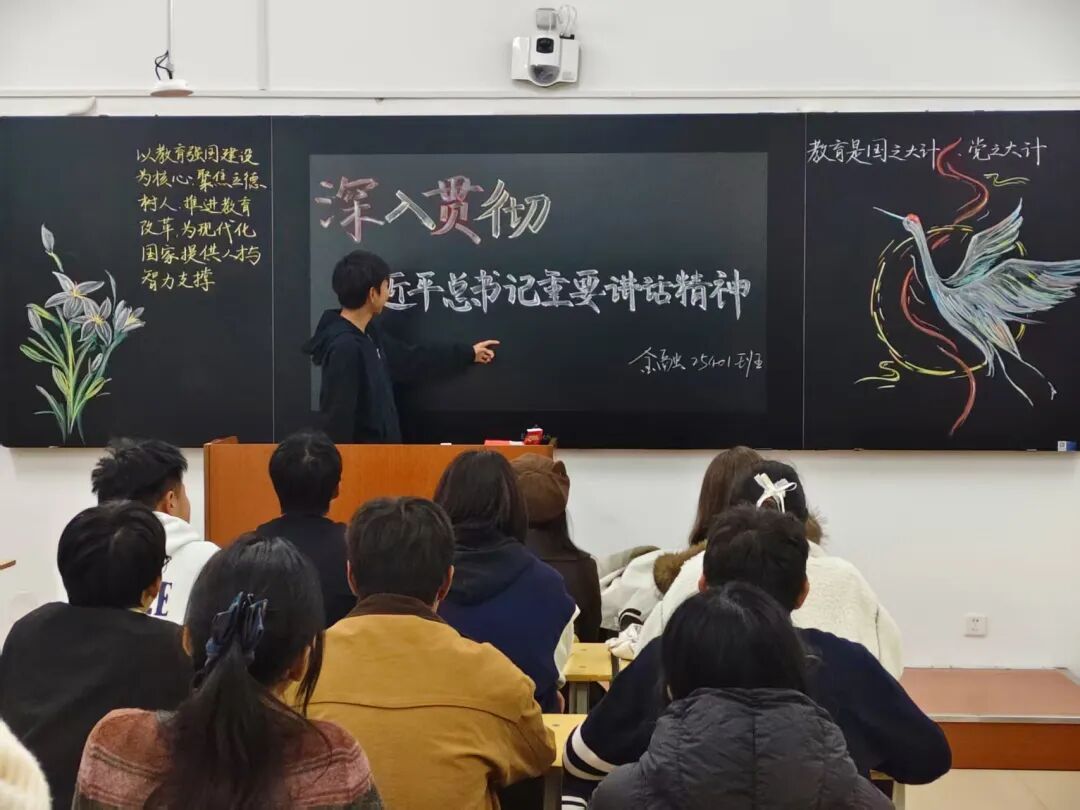 以教育强国建设
为核心,聚焦立德
树人,推进教育
改革,为现代化
国家提供人才与
智力支撑
深入贯彻
近平总书记重要讲话精神
金融25401班
教育是国之大计、党之大计